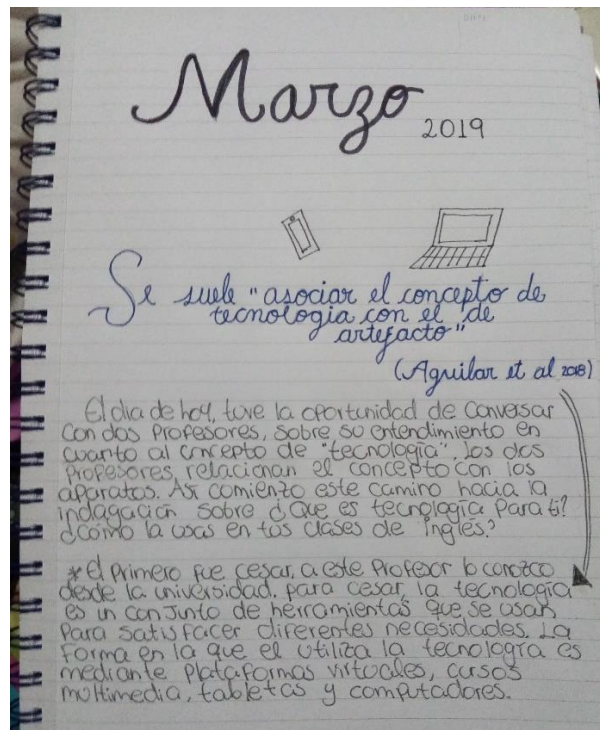 Marzo
2019
Se suele "asociar el concepto de
tecnología con el "de
artefacto"
(Aguilar et al 2018)
El dia de hoy, tuve la oportunidad de conversar
con dos profesores, sobre su entendimiento en
cuanto al concepto de "tecnología", los dos
profesores, relacionan el concepto con los
aparatos. Asi comienzo este camino hacia la
indagación sobre ¿Que es tecnología para ti?
¿Cómo la usas en tus clases de inglés?
* El primero fue cesar, a este profesor lo conozco
desde la universidad. para cesar, la tecnología
es un conjunto de herramientas que se usan
para satisfacer diferentes necesidades. La
forma en la que el utiliza la tecnología es
mediante plataformas virtuales, cursos
multimedia, tabletas y computadores.